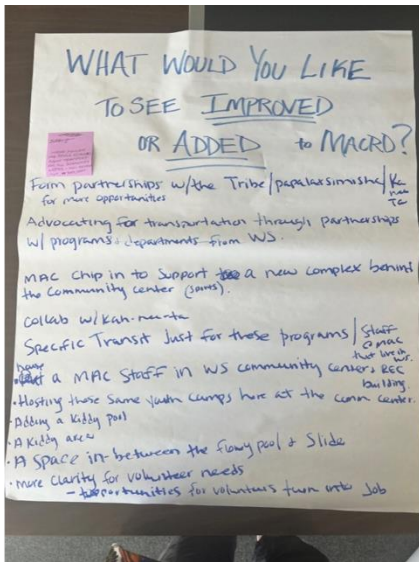 WHAT WOULD YOU LIKE
TO SEE IMPROVED
OR ADDED to MACRD?
Form partnerships w/the Tribe/papalaxsimisha/Kah
nee
Ta
for more opportunities
Advocating for transportation through partnerships
w/ programs + departments from WS.
MAC Chip in to support a new complex behind
the Community center (sports).
Collab w/Kah-nee-ta
Specific Transit Just for those programs/Staff
@MAC
that live in
WS.
have
a MAC Staff in WS community center + REC
building.
• Hosting those same youth camps here at the comm center.
• Adding a Kiddy pool
• A Kiddy area
• A space in-between the flowy pool + Slide
• More clarity for volunteer needs
- opportunities for volunteers turn into Job